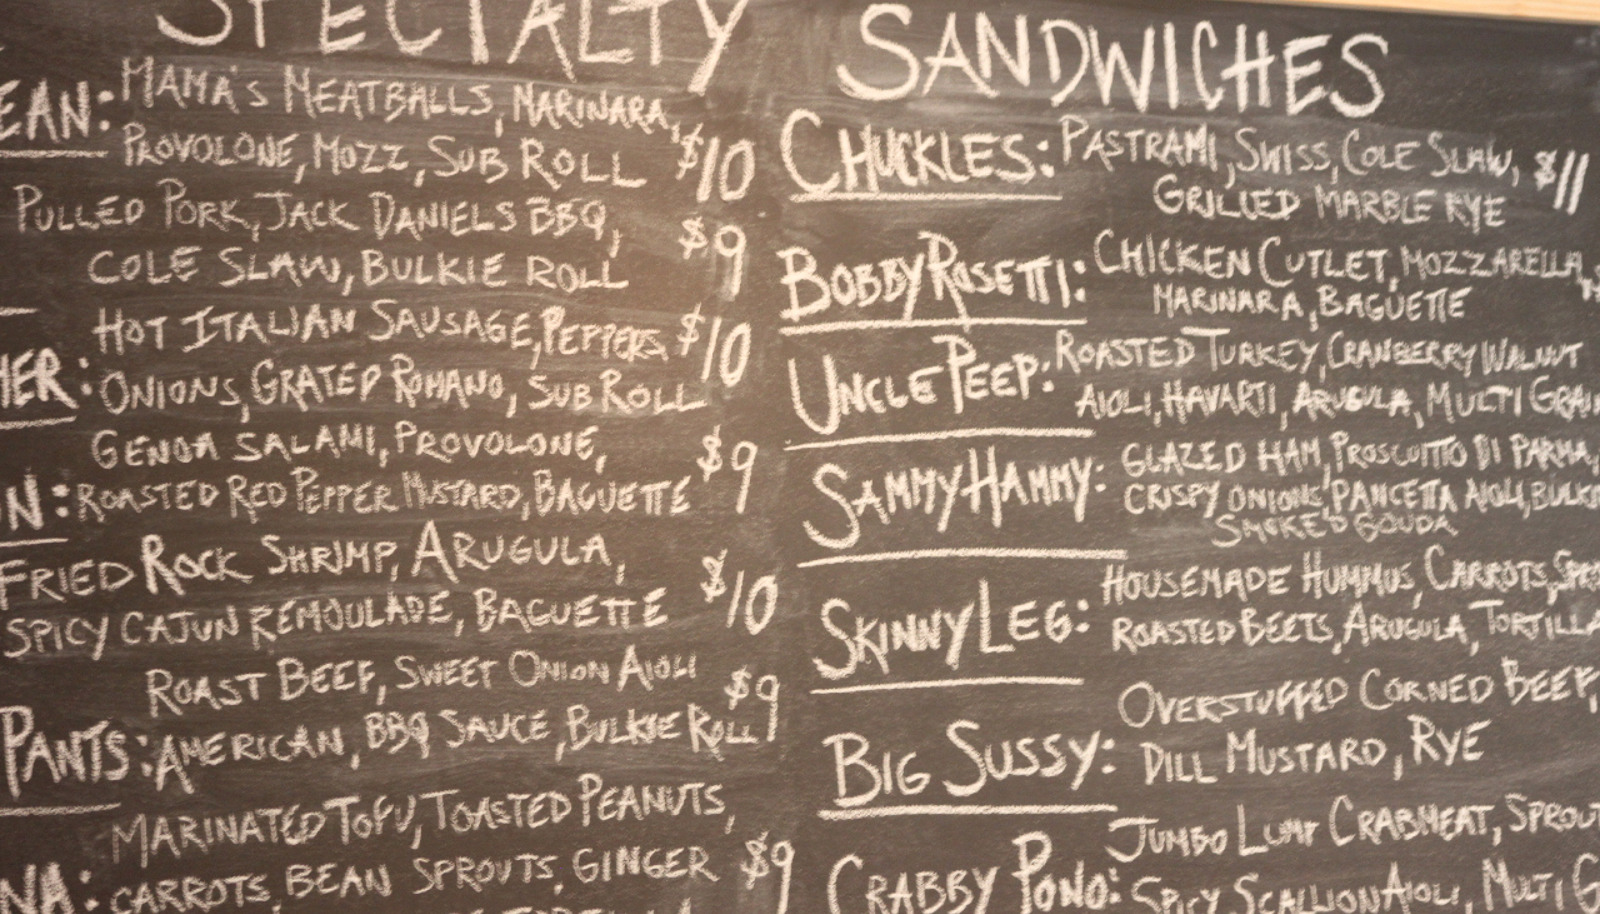 SPECIALTY SANDWICHES
EAN: MAMA'S MEATBALLS, MARINARA,
PROVOLONE, MOZZ, SUB ROLL $10
PULLED PORK, JACK DANIELS BBQ,
COLE SLAW, BULKIE ROLL $9
HOT ITALIAN SAUSAGE, PEPPERS $10
HER: ONIONS, GRATED ROMANO, SUB ROLL
GENOA SALAMI, PROVOLONE, $9
N: ROASTED RED PEPPER MUSTARD, BAGUETTE
FRIED ROCK SHRIMP, ARUGULA,
SPICY CAJUN REMOULADE, BAGUETTE $10
ROAST BEEF, SWEET ONION AIOLI $9
PANTS: AMERICAN, BBQ SAUCE, BULKIE ROLL
MARINATED TOFU, TOASTED PEANUTS,
NA: CARROTS, BEAN SPROUTS, GINGER $9
CHUCKLES: PASTRAMI, SWISS, COLE SLAW, $11
GRILLED MARBLE RYE
BOBBY ROSETTI: CHICKEN CUTLET, MOZZARELLA,
MARINARA, BAGUETTE
UNCLE PEEP: ROASTED TURKEY, CRANBERRY WALNUT
AIOLI, HAVARTI, ARUGULA, MULTI GRAIN
SAMMY HAMMY: GLAZED HAM, PROSCUITTO DI PARMA,
CRISPY ONIONS, PANCETTA AIOLI, BULKI
SMOKED GOUDA
SKINNY LEG: HOUSEMADE HUMMUS, CARROTS, SPR
ROASTED BEETS, ARUGULA, TORTILLA
OVERSTUFFED CORNED BEEF,
BIG SUSSY: DILL MUSTARD, RYE
JUMBO LUMP CRABMEAT, SPROUT
CRABBY PONO: SPICY SCALLION AIOLI, MULTI G